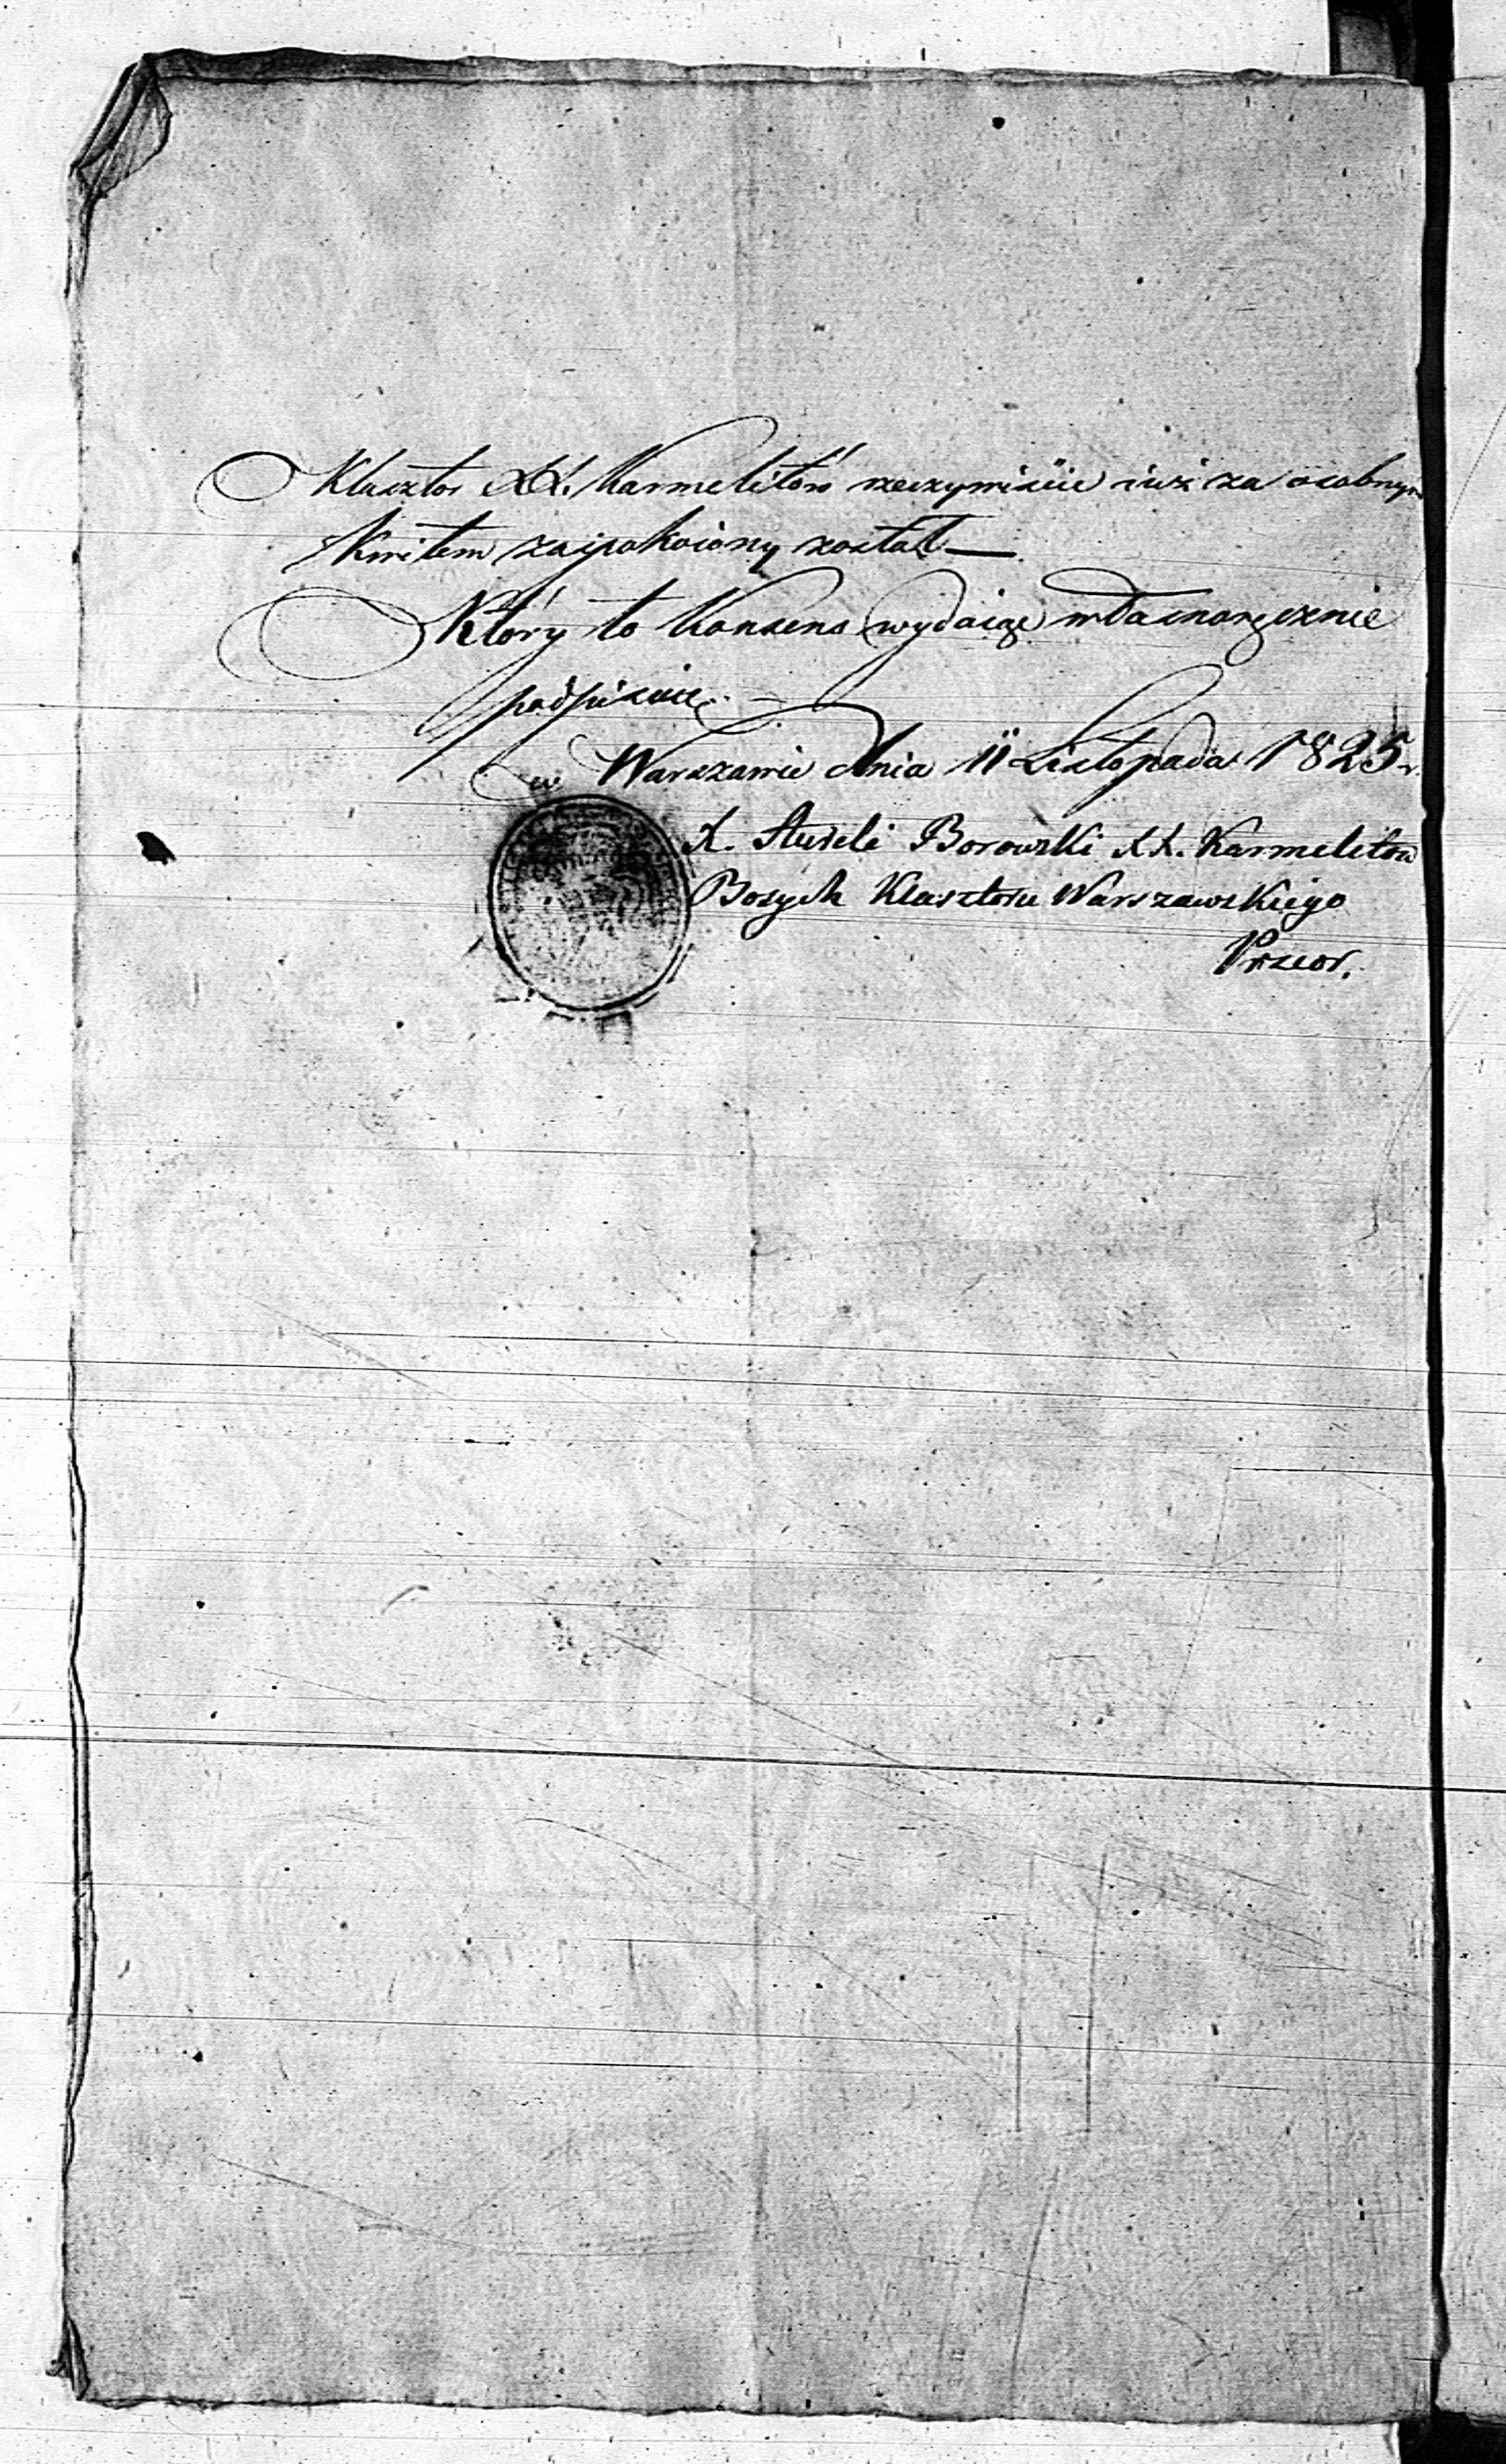 Klasztor XX. Karmelitów rzeczywiście iuż za osobnym
Kwitem zaspokoiony został —
Który to Konsens wydaiąc własnoręcznie
podpisuię. —
w Warszawie dnia 11 Listopada 1825 r.
X. Aureli Borowski XX. Karmelitów
Bosych Klasztoru Warszawskiego
Przeor.